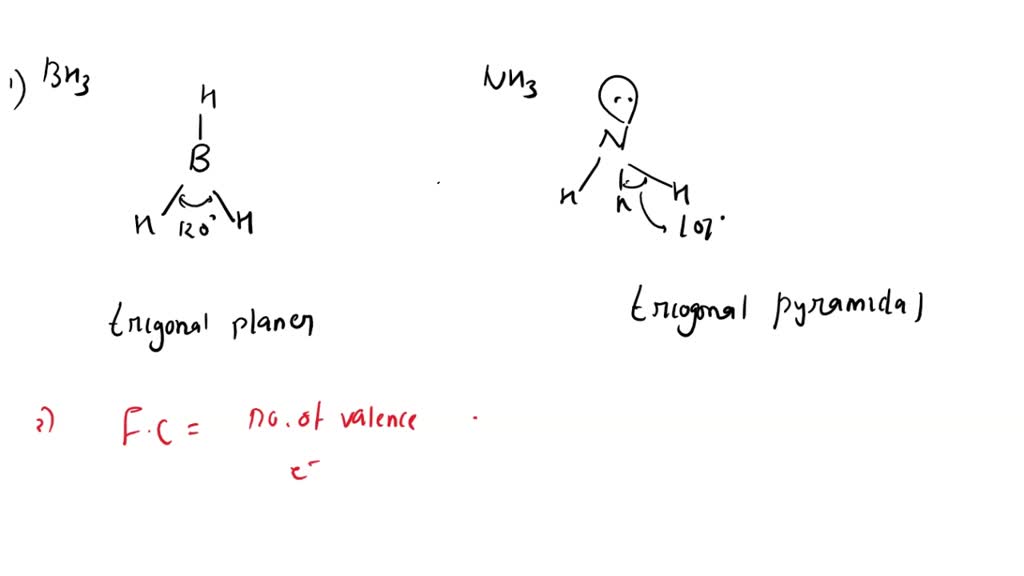 1) BH3
H
B
H 120° H
trigonal planer
NH3
N
H H H
107°
triogonal pyramidal
2) F.C = no. of valence
e-